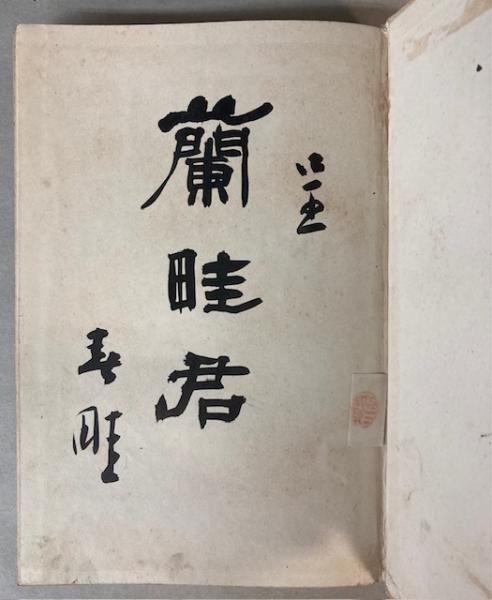 呈
蘭畦君
春畦